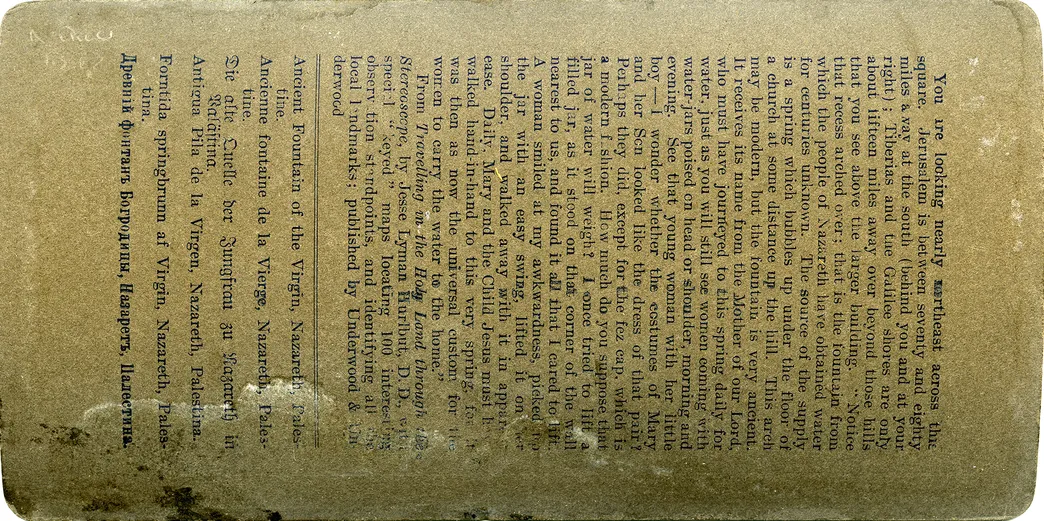 You are looking nearly northeast across the
square. Jerusalem is between seventy and eighty
miles away at the south (behind you and at your
right); Tiberias and the Galilee shores are only
about fifteen miles away over beyond those hills
that you see above the larger building. "Notice
that recess arched over; that is the fountain from
which the people of Nazareth have obtained water
for centuries unknown. The source of the supply
is a spring which bubbles up under the floor of
a church at some distance up the hill. This arch
may be modern, but the fountain is very ancient.
It receives its name from the Mother of our Lord,
who must have journeyed to this spring daily for
water, just as you will still see women coming with
water-jars poised on head or shoulder, morning and
evening. See that young woman with her little
boy—I wonder whether the costumes of Mary
and her Son looked like the dress of that pair?
Perhaps they did, except for the fez cap, which is
a modern fashion. How much do you suppose that
jar of water will weigh? I once tried to lift a
filled jar, as it stood on that corner of the wall
nearest to us, and found it all that I cared to lift.
A woman smiled at my awkwardness, picked up
the jar with an easy swing, lifted it on her
shoulder, and walked away with it in apparent
ease. Daily, Mary and the Child Jesus must have
walked hand-in-hand to this very spring, for it
was then as now the universal custom for the
women to carry the water to the home."
From Travelling in the Holy Land through the
Stereoscope, by Jesse Lyman Hurlbut, D.D., with
special "keyed" maps locating 100 interesting
observation standpoints, and identifying all the
local landmarks; published by Underwood & Un-
derwood
Ancient Fountain of the Virgin, Nazareth, Pales-
tine.
Ancienne fontaine de la Vierge, Nazareth, Pales-
tine.
Die alte Quelle der Jungfrau zu Nazareth in
Palästina.
Antigua Pila de la Virgen, Nazareth, Palestina.
Forntida springbrunn af Virgin, Nazareth, Pales-
tina.
Древній фонтанъ Богородицы, Назаретъ, Палестина.